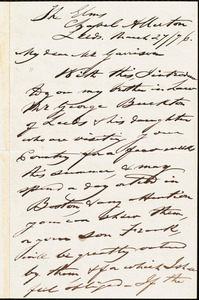 The Elms
Chapel Allerton
Leeds. March 27/76.
My dear Mr Garrison
With this I introduce
to you my brother in law
Mr George Buckton
of Leeds & his daughter
who visiting your
Country for a
this summer & may
spend a day or two in
Boston & any attention
you can show them,
or your son Frank
will be greatly
by them & for which I shall
feel obliged. If the